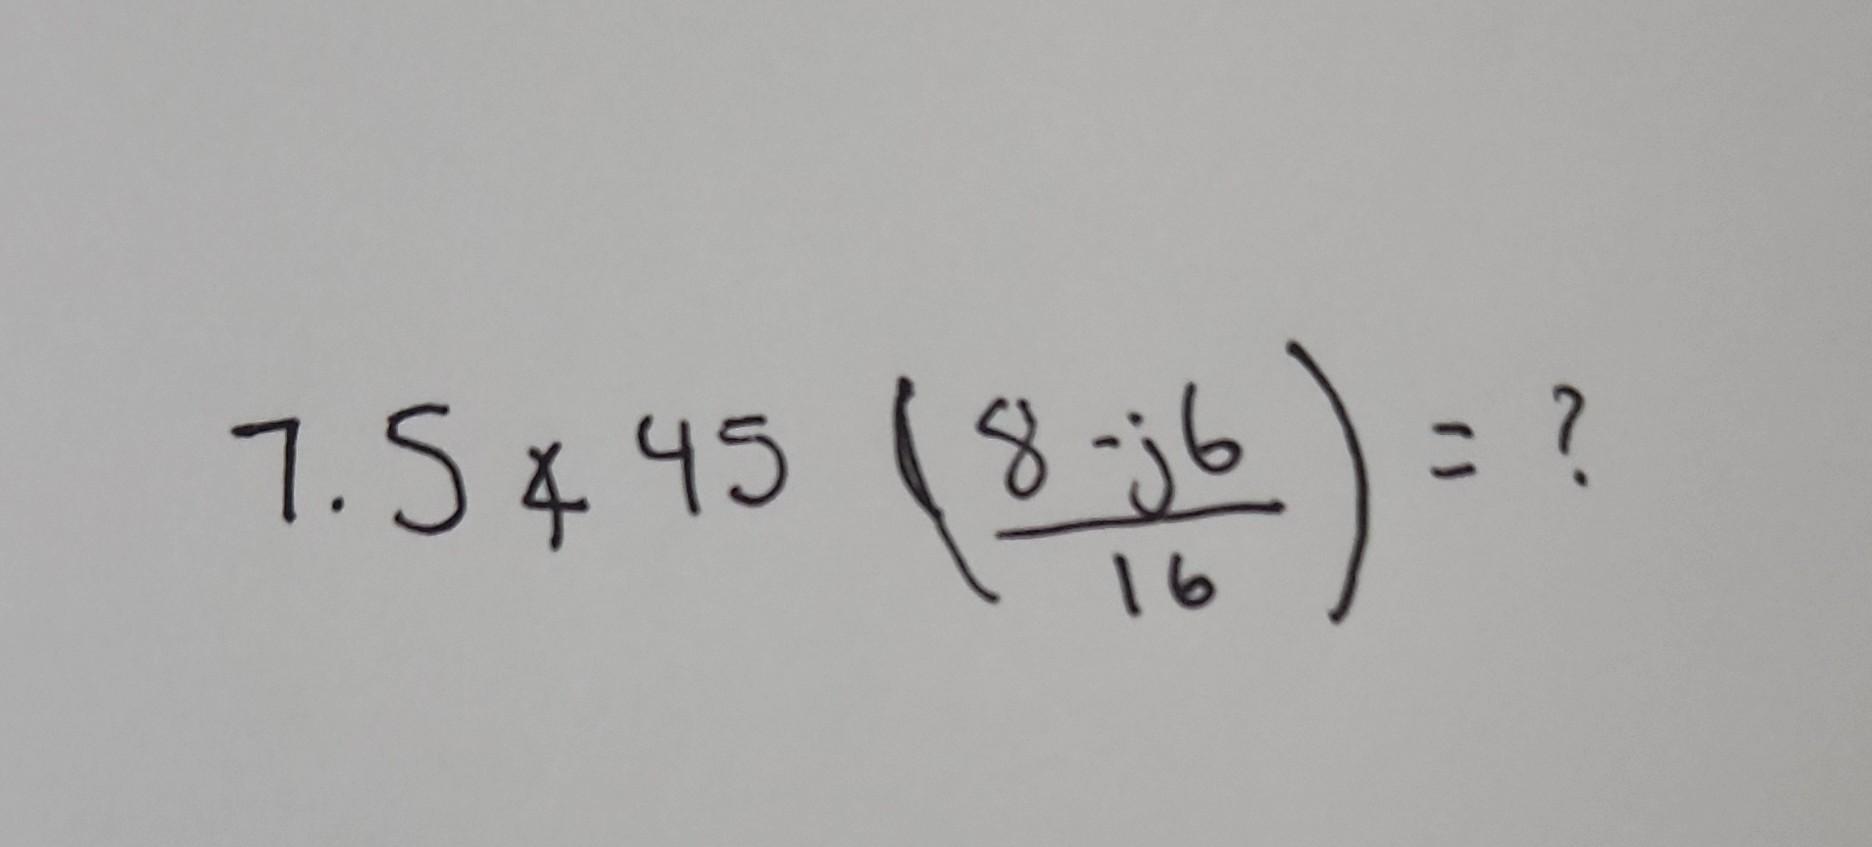 7.5∡45 (8-j6/16) = ?